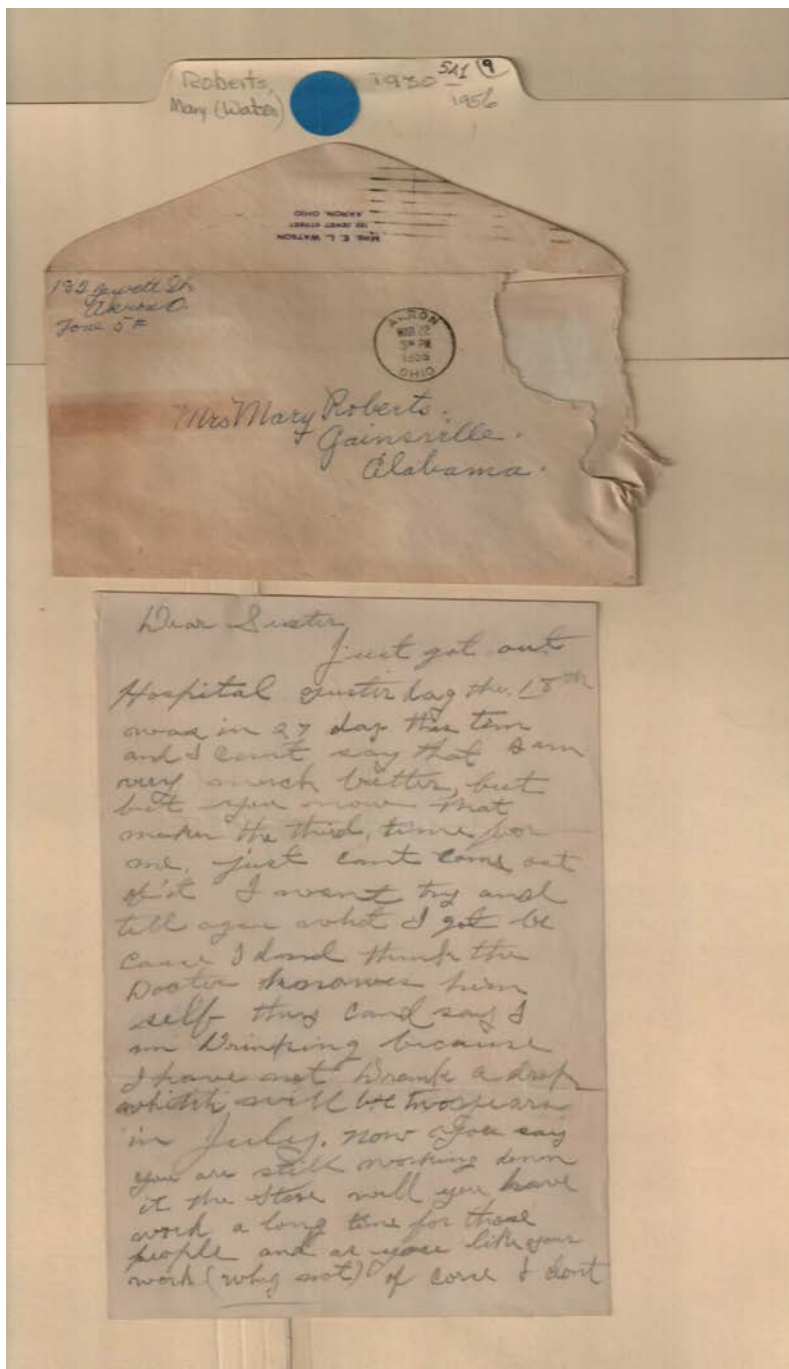 Roberts,
Mary (Watson)
1930 –
1956
5A1 (9)
MRS. E. L. WATSON
AKRON, OHIO
Akron O.
AKRON
MAR 22
PM
OHIO
Mrs Mary Roberts.
Gainsville.
Alabama.
Dear Sister
just got out
Hospital the 18th
was in 27 day this tim
and I cant say that I am
very much better, but
but you now that
makes the third, time for
me, just cant come out
of it I want try and
till you what I got be
cause I dond think the
Docter knowes him
self they cand say I
am Drinking because
I have not Drank a drop
whitch will be two years
in July. now you say
you are still working down
it the Store will you have
work a long time for those
people and as you like your
work (why not) of corse I dont